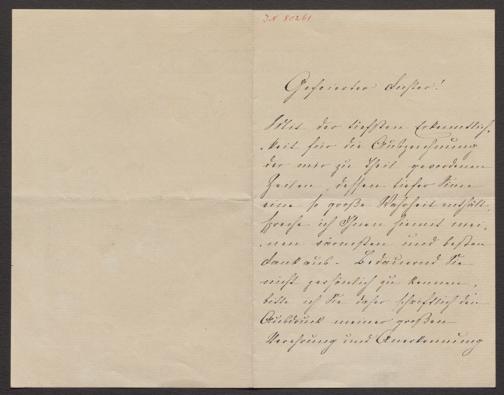 IN 80261
Gefeierter Dichter!
Mit der tiefsten Erkenntlich-
keit für die Auszeichnung
der mir zu Theil gewordenen
Zeilen, dessen tiefer Sinn
eine so große Wahrheit enthält,
spreche ich Ihnen hiemit mei-
nen wärmsten und besten
Dank aus. Bedauernd Sie
nicht persönlich zu kennen,
bitte ich Sie daher schriftlich den
Ausdruck meiner großen
Verehrung und Anerkennung